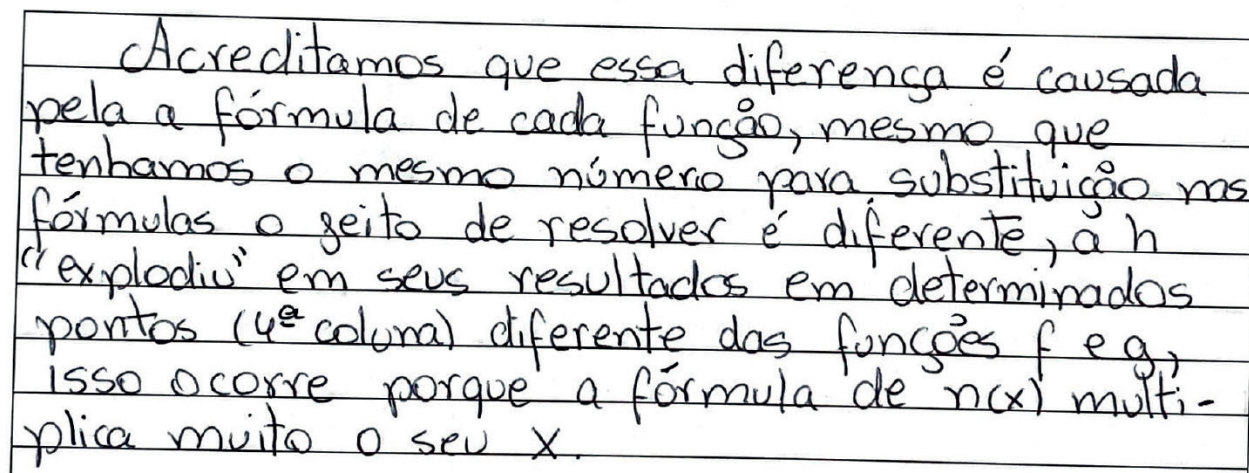 Acreditamos que essa diferença é causada
pela a fórmula de cada função, mesmo que
tenhamos o mesmo número para substituição nas
fórmulas o geito de resolver é diferente, a h
"explodiu" em seus resultados em determinados
pontos (4ª coluna) diferente das funções f e g,
isso ocorre porque a fórmula de h(x) multi-
plica muito o seu x.